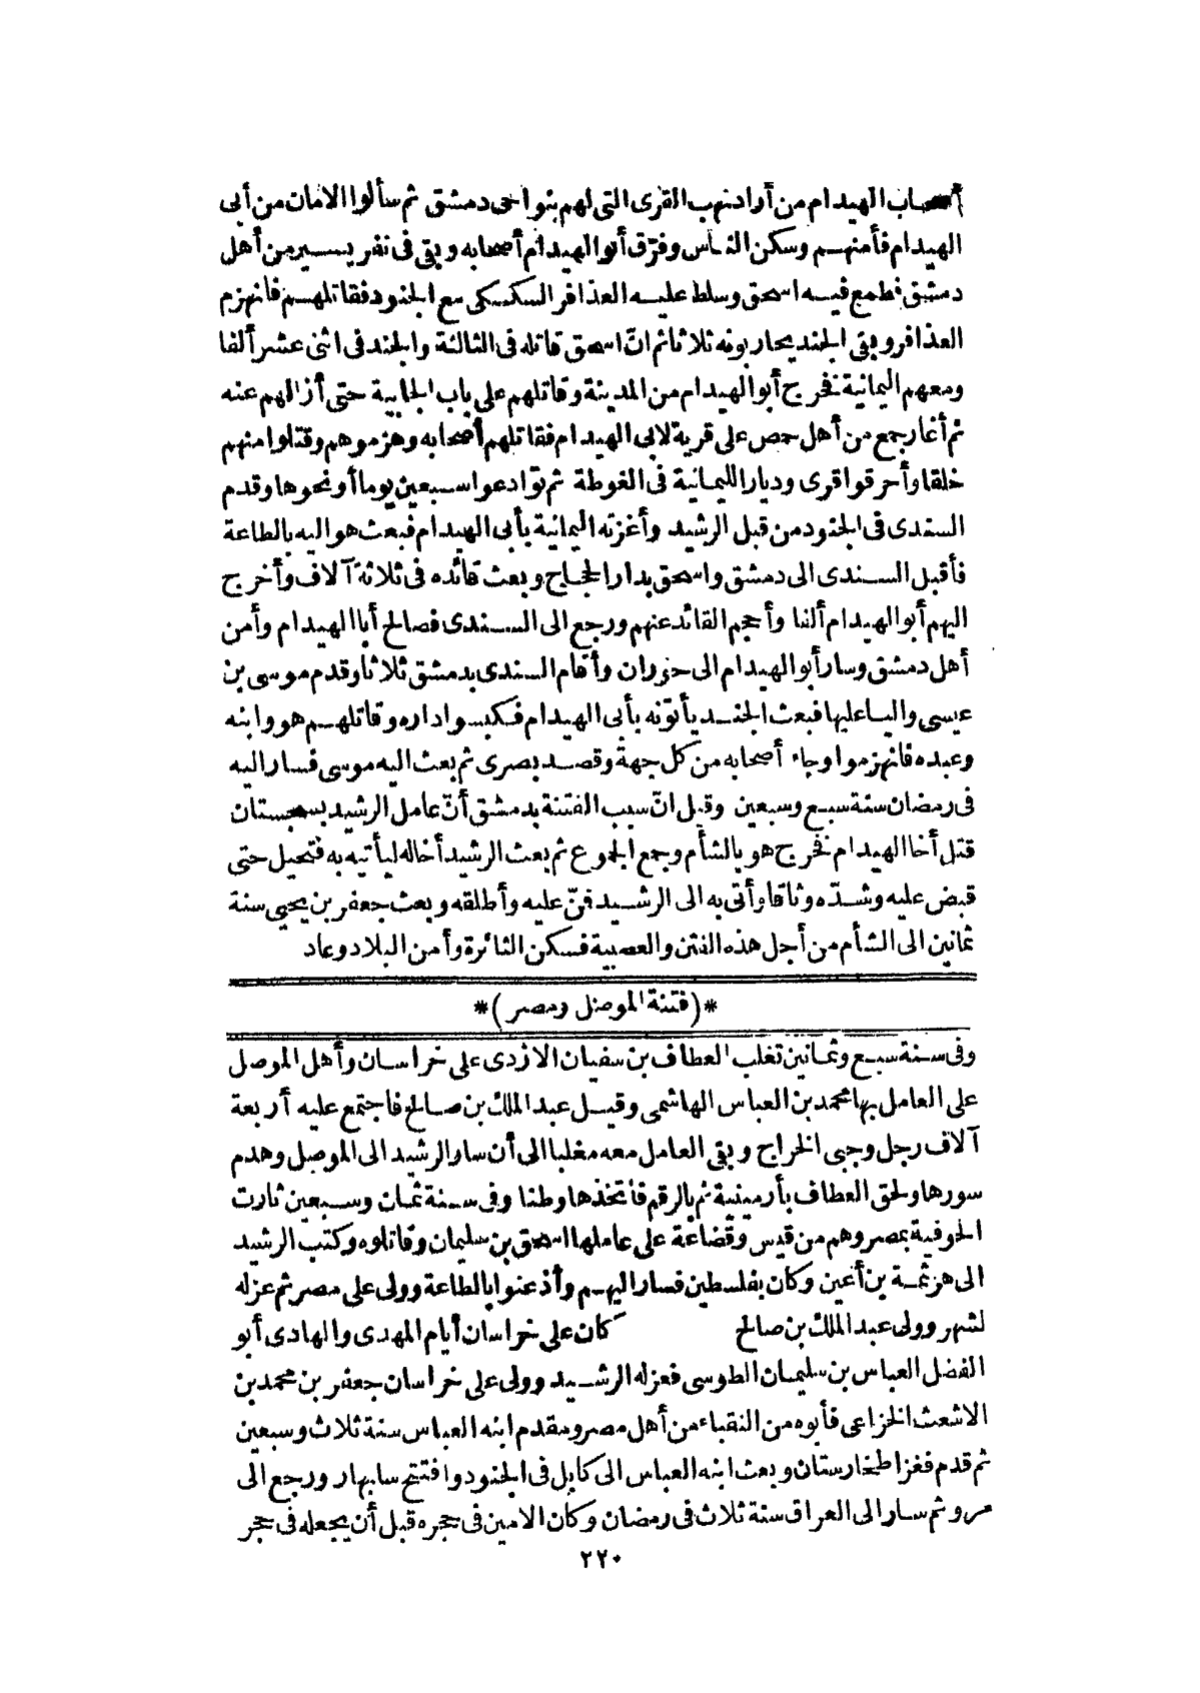 أصحاب الهيدام من أراد نهب القرى التى لهم بنواحى دمشق ثم سألوا الامان من أبى
الهيدام فأمنهم وسكن الناس وفرّق أبو الهيدام أصحابه وبقى فى نفر يسير من أهل
دمشق فطمع فيه اسحق وسلط عليه العذافر السكسكى مع الجنود فقاتلهم فانهزم
العذافر وبقى الجند يحاربونه ثلاثا ثم انّ اسحق قاتله فى الثالثة والجند فى اثنى عشر ألفا
ومعهم اليمانية فخرج أبو الهيدام من المدينة وقاتلهم على باب الجابية حتى أزالهم عنه
ثم أغار جمع من أهل حمص على قرية لابى الهيدام فقاتلهم أصحابه وهزموهم وقتلوا منهم
خلقا وأحرقوا قرى وديارا لليمانية فى الغوطة ثم توادعوا سبعين يوما أو نحوها وقدم
السندى فى الجنود من قبل الرشيد وأغزته اليمانية بأبى الهيدام فبعث هو اليه بالطاعة
فأقبل السندى الى دمشق واسحق بدار الحجاج وبعث قائده فى ثلاثة آلاف وأخرج
اليهم أبو الهيدام ألفا وأحجم القائد عنهم ورجع الى السندى فصالح أبا الهيدام وأمن
أهل دمشق وسار أبو الهيدام الى حوران وأقام السندى بدمشق ثلاثا وقدم موسى بن
عيسى واليا عليها فبعث الجند يأتونه بأبى الهيدام فكبسوا داره وقاتلهم هو وابنه
وعبده فانهزموا وجاء أصحابه من كل جهة وقصد بصرى ثم بعث اليه موسى فسار اليه
فى رمضان سنة سبع وسبعين وقيل انّ سبب الفتنة بدمشق أنّ عامل الرشيد بسجستان
قتل أخا الهيدام فخرج هو بالشأم وجمع الجموع ثم بعث الرشيد أخاله ليأتيه به فتحيل حتى
قبض عليه وشدّه وثاقا وأتى به الى الرشيد فمنّ عليه وأطلقه وبعث جعفر بن يحيى سنة
ثمانين الى الشأم من أجل هذه الفتن والعصبية فسكن الثائرة وأمن البلاد وعاد
*(فتنة الموصل ومصر)*
وفى سنة سبع وثمانين تغلب العطاف بن سفيان الازدى على خراسان وأهل الموصل
على العامل بها محمد بن العباس الهاشمى وقيل عبد الملك بن صالح فاجتمع عليه أربعة
آلاف رجل وجبى الخراج وبقى العامل معه مغلبا الى أن سار الرشيد الى الموصل وهدم
سورها ولحق العطاف بأرمينية ثم بالرقم فاتخذها وطنا وفى سنة ثمان وسبعين ثارت
الحوفية بمصر وهم من قيس وقضاعة على عاملها اسحق بن سليمان وقاتلوه وكتب الرشيد
الى هرثمة بن أعين وكان بفلسطين فسار اليهم وأذعنوا بالطاعة وولى على مصر ثم عزله
لشهر وولى عبد الملك بن صالح كان على خراسان أيام المهدى والهادى أبو
الفضل العباس بن سليمان الطوسى فعزله الرشيد وولى على خراسان جعفر بن محمد بن
الاشعث الخزاعى فأبوه من النقباء من أهل مصر ومقدم ابنه العباس سنة ثلاث وسبعين
ثم قدم فغزا طخارستان وبعث ابنه العباس الى كابل فى الجنود وافتتح سابهار ورجع الى
مرو ثم سار الى العراق سنة ثلاث فى رمضان وكان الامين فى حجره قبل أن يجعله فى حجر
٢٢٠